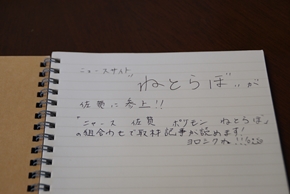 ニュースサイト
ねとらぼ が
佐賀に参上!!
「ニャース 佐賀 ポケモン ねとらぼ」
の組合わせで取材記事が読めます!
ヨロシクね